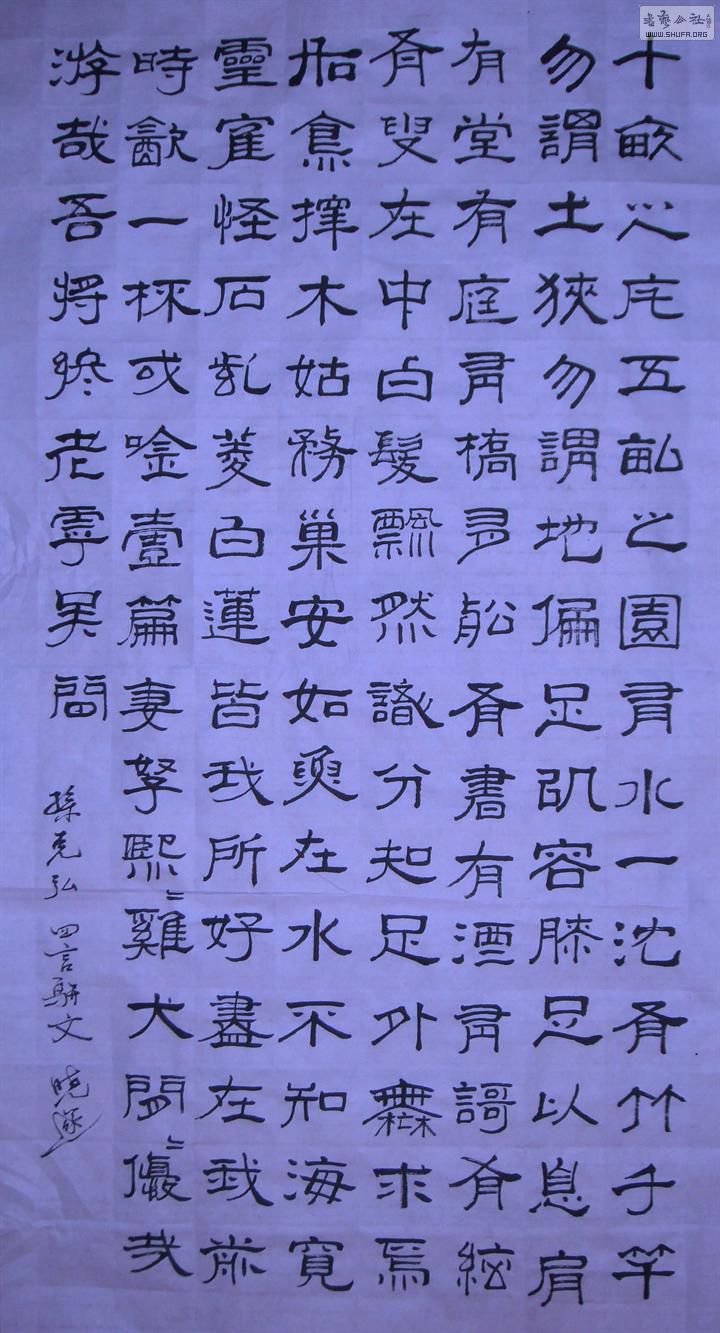 十畝之宅五畝之園有水一沈有竹千竿
勿謂土狹勿謂地偏足以容膝足以息肩
有堂有庭有橋有船有書有酒有謌有絃
有叟在中白髮飄然識分知足外無求焉
如鳥擇木姑務巢安如魚在水不知海寬
靈隺怪石紫菱白蓮皆我所好盡在我前
時飲一杯或唫壹篇妻孥熙〻雞犬閒〻優哉
游哉吾將終老乎吳間
孫克弘 四言駢文 曉
書藝公社
WWW.SHUFA.ORG